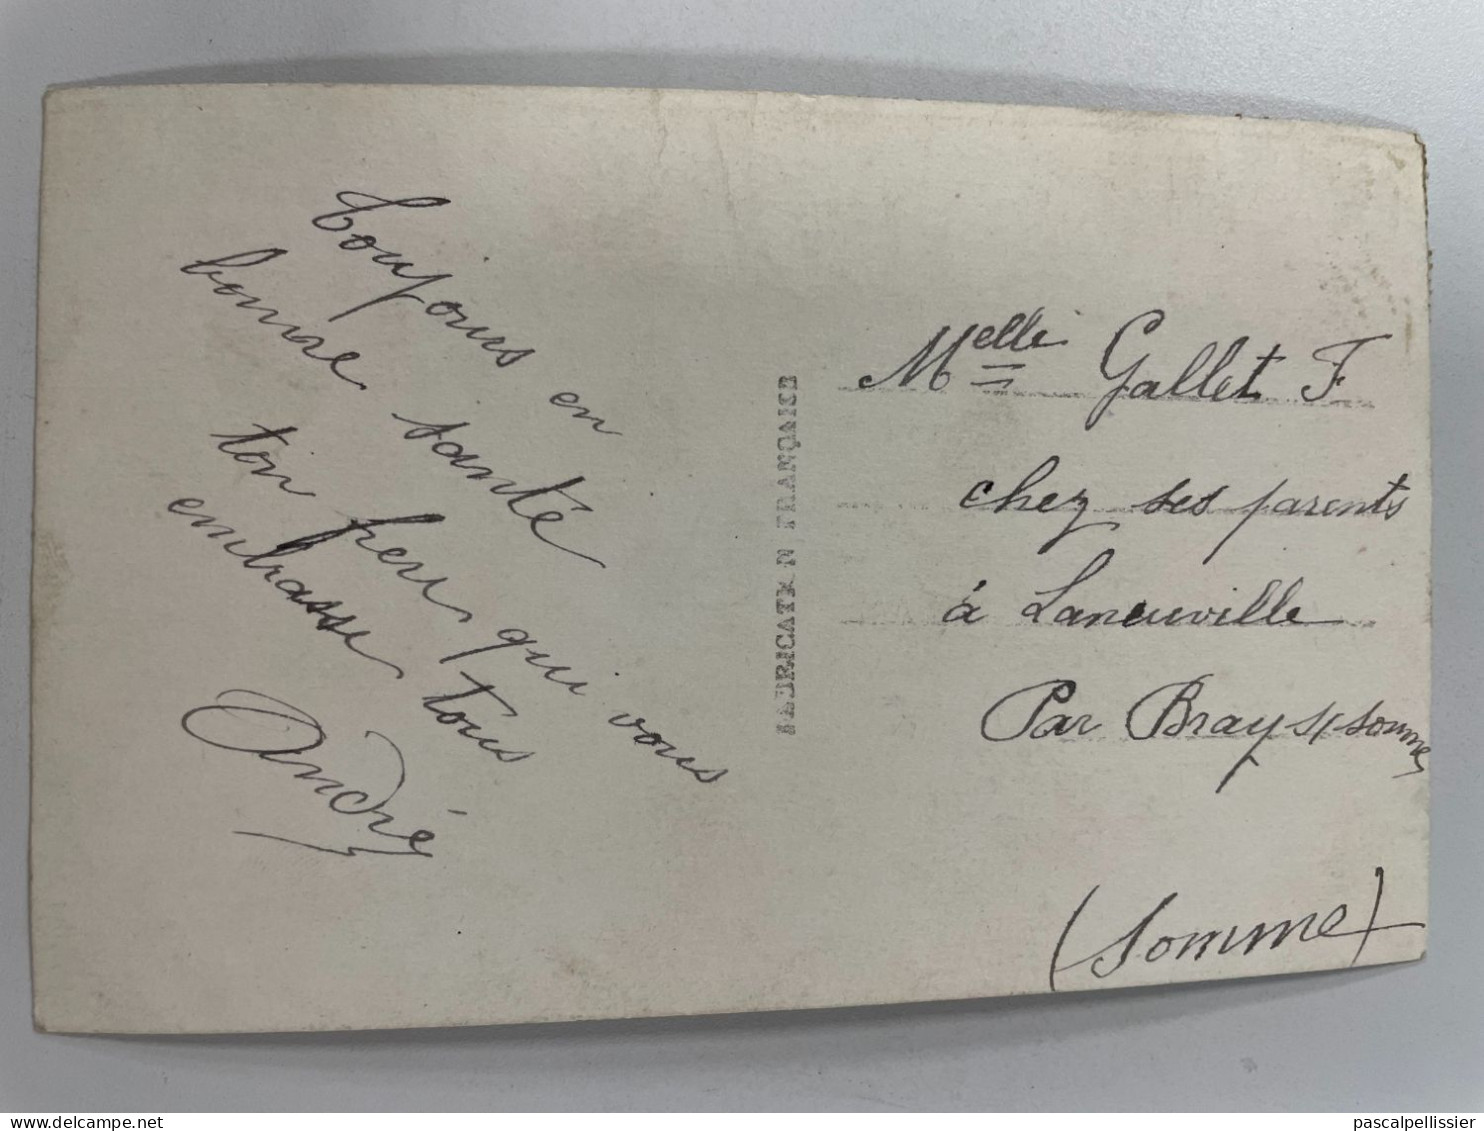 Toujours en
bonne santé
ton frere qui vous
embrasse tous
André
FABRICATION FRANÇAISE
Melle Gallet F
chez ses parents
à Laneuville
Par Bray s/somme
(Somme)
pascalpellissier